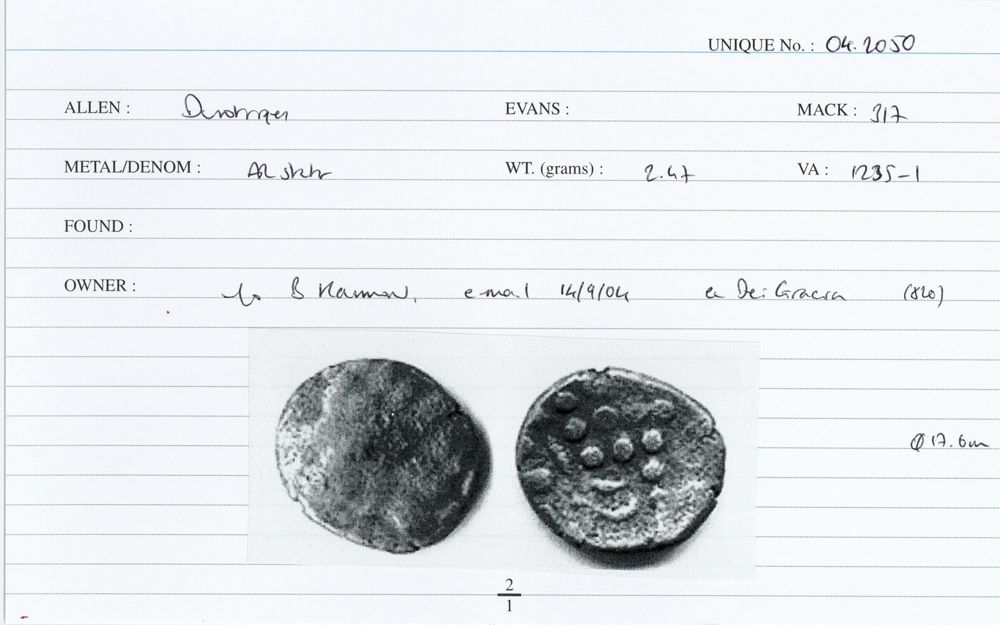 UNIQUE No. : 04.2050
ALLEN : Durotriges EVANS : MACK : 317
METAL/DENOM : AR WT. (grams) : 2.47 VA : 1235-1
FOUND :
OWNER : B email 14/9/04 ex Dei Gracia (820)
Ø 17.6m
2
1